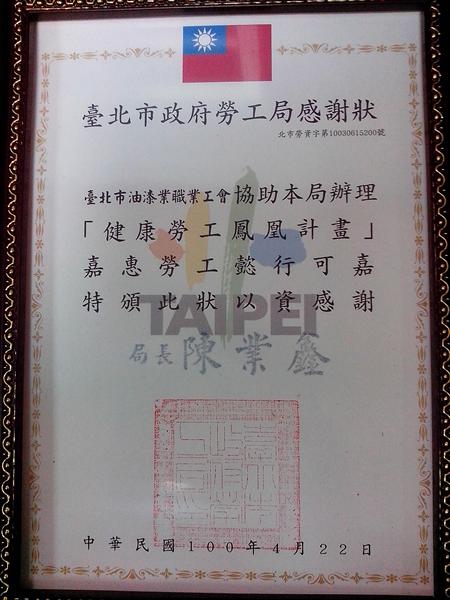 臺北市政府勞工局感謝狀
北市勞資字第10030615200號
臺北市油漆業職業工會協助本局辦理
「健康勞工鳳凰計畫」
嘉惠勞工懿行可嘉
特頒此狀以資感謝
TAIPEI
局長 陳業鑫
中華民國100年4月22日